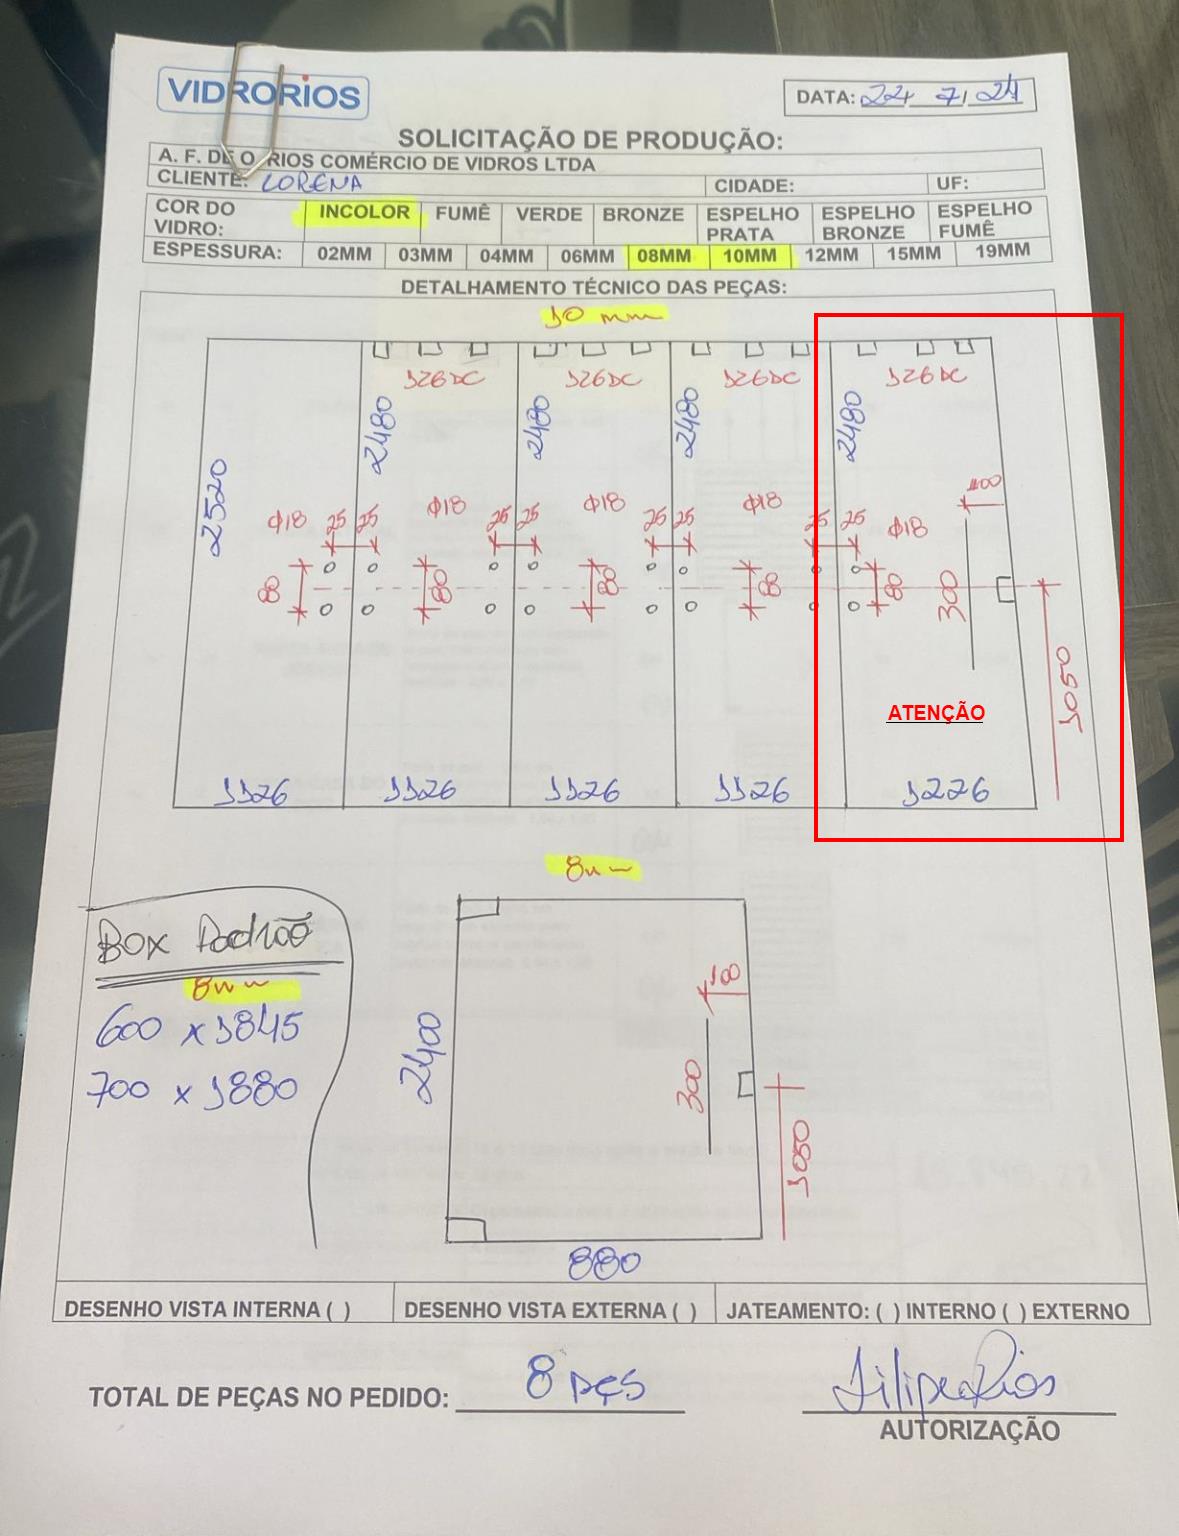 VIDRORIOS
DATA: 22/ 7/ 24
SOLICITAÇÃO DE PRODUÇÃO:
A. F. DE O. RIOS COMÉRCIO DE VIDROS LTDA
CLIENTE: LORENA CIDADE: UF:
COR DO VIDRO: INCOLOR FUMÊ VERDE BRONZE ESPELHO PRATA ESPELHO BRONZE ESPELHO FUMÊ
ESPESSURA: 02MM 03MM 04MM 06MM 08MM 10MM 12MM 15MM 19MM
DETALHAMENTO TÉCNICO DAS PEÇAS:
10 mm
126DC 126DC 126DC 126DC
2520 2480 2480 2480 2480
100
Φ18 25 25 Φ18 25 25 Φ18 25 25 Φ18 25 25 Φ18
80 80 80 80 80 300
1050
ATENÇÃO
1126 1126 1126 1126 1226
8mm
Box Padrão
8mm
600 x 1845
700 x 1880
100
2400 300
1050
880
DESENHO VISTA INTERNA ( ) DESENHO VISTA EXTERNA ( ) JATEAMENTO: ( ) INTERNO ( ) EXTERNO
TOTAL DE PEÇAS NO PEDIDO: 8 pçs
Filipe Rios
AUTORIZAÇÃO